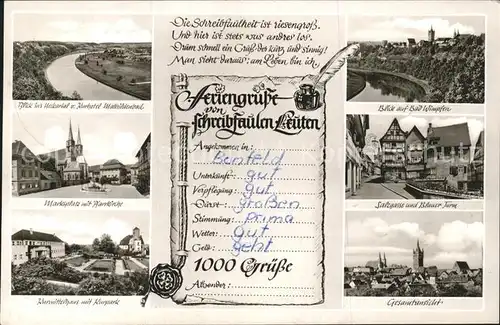 Die Schreibfaulheit ist riesengroß.
Und hier ist stets was andres los.
Drum schnell ein Gruß, des kurz und sinnig!
Man sieht daraus: am Leben bin ich.
Feriengrüße
von
schreibfaulen Leuten
Angekommen in:
Benfeld
Unterkunft: gut
Verpflegung: Gut
Durst: Großen
Stimmung: Prima
Wetter: Gut
Geld: geht
1000 Grüße
Absender:
Blick ins Neckartal u. Kurhotel Mathildenbad
Marktplatz mit Pfarrkirche
Kurmittelhaus mit Kurpark
Blick auf Bad Wimpfen
Salzgasse und Blauer Turm
Gesamtansicht